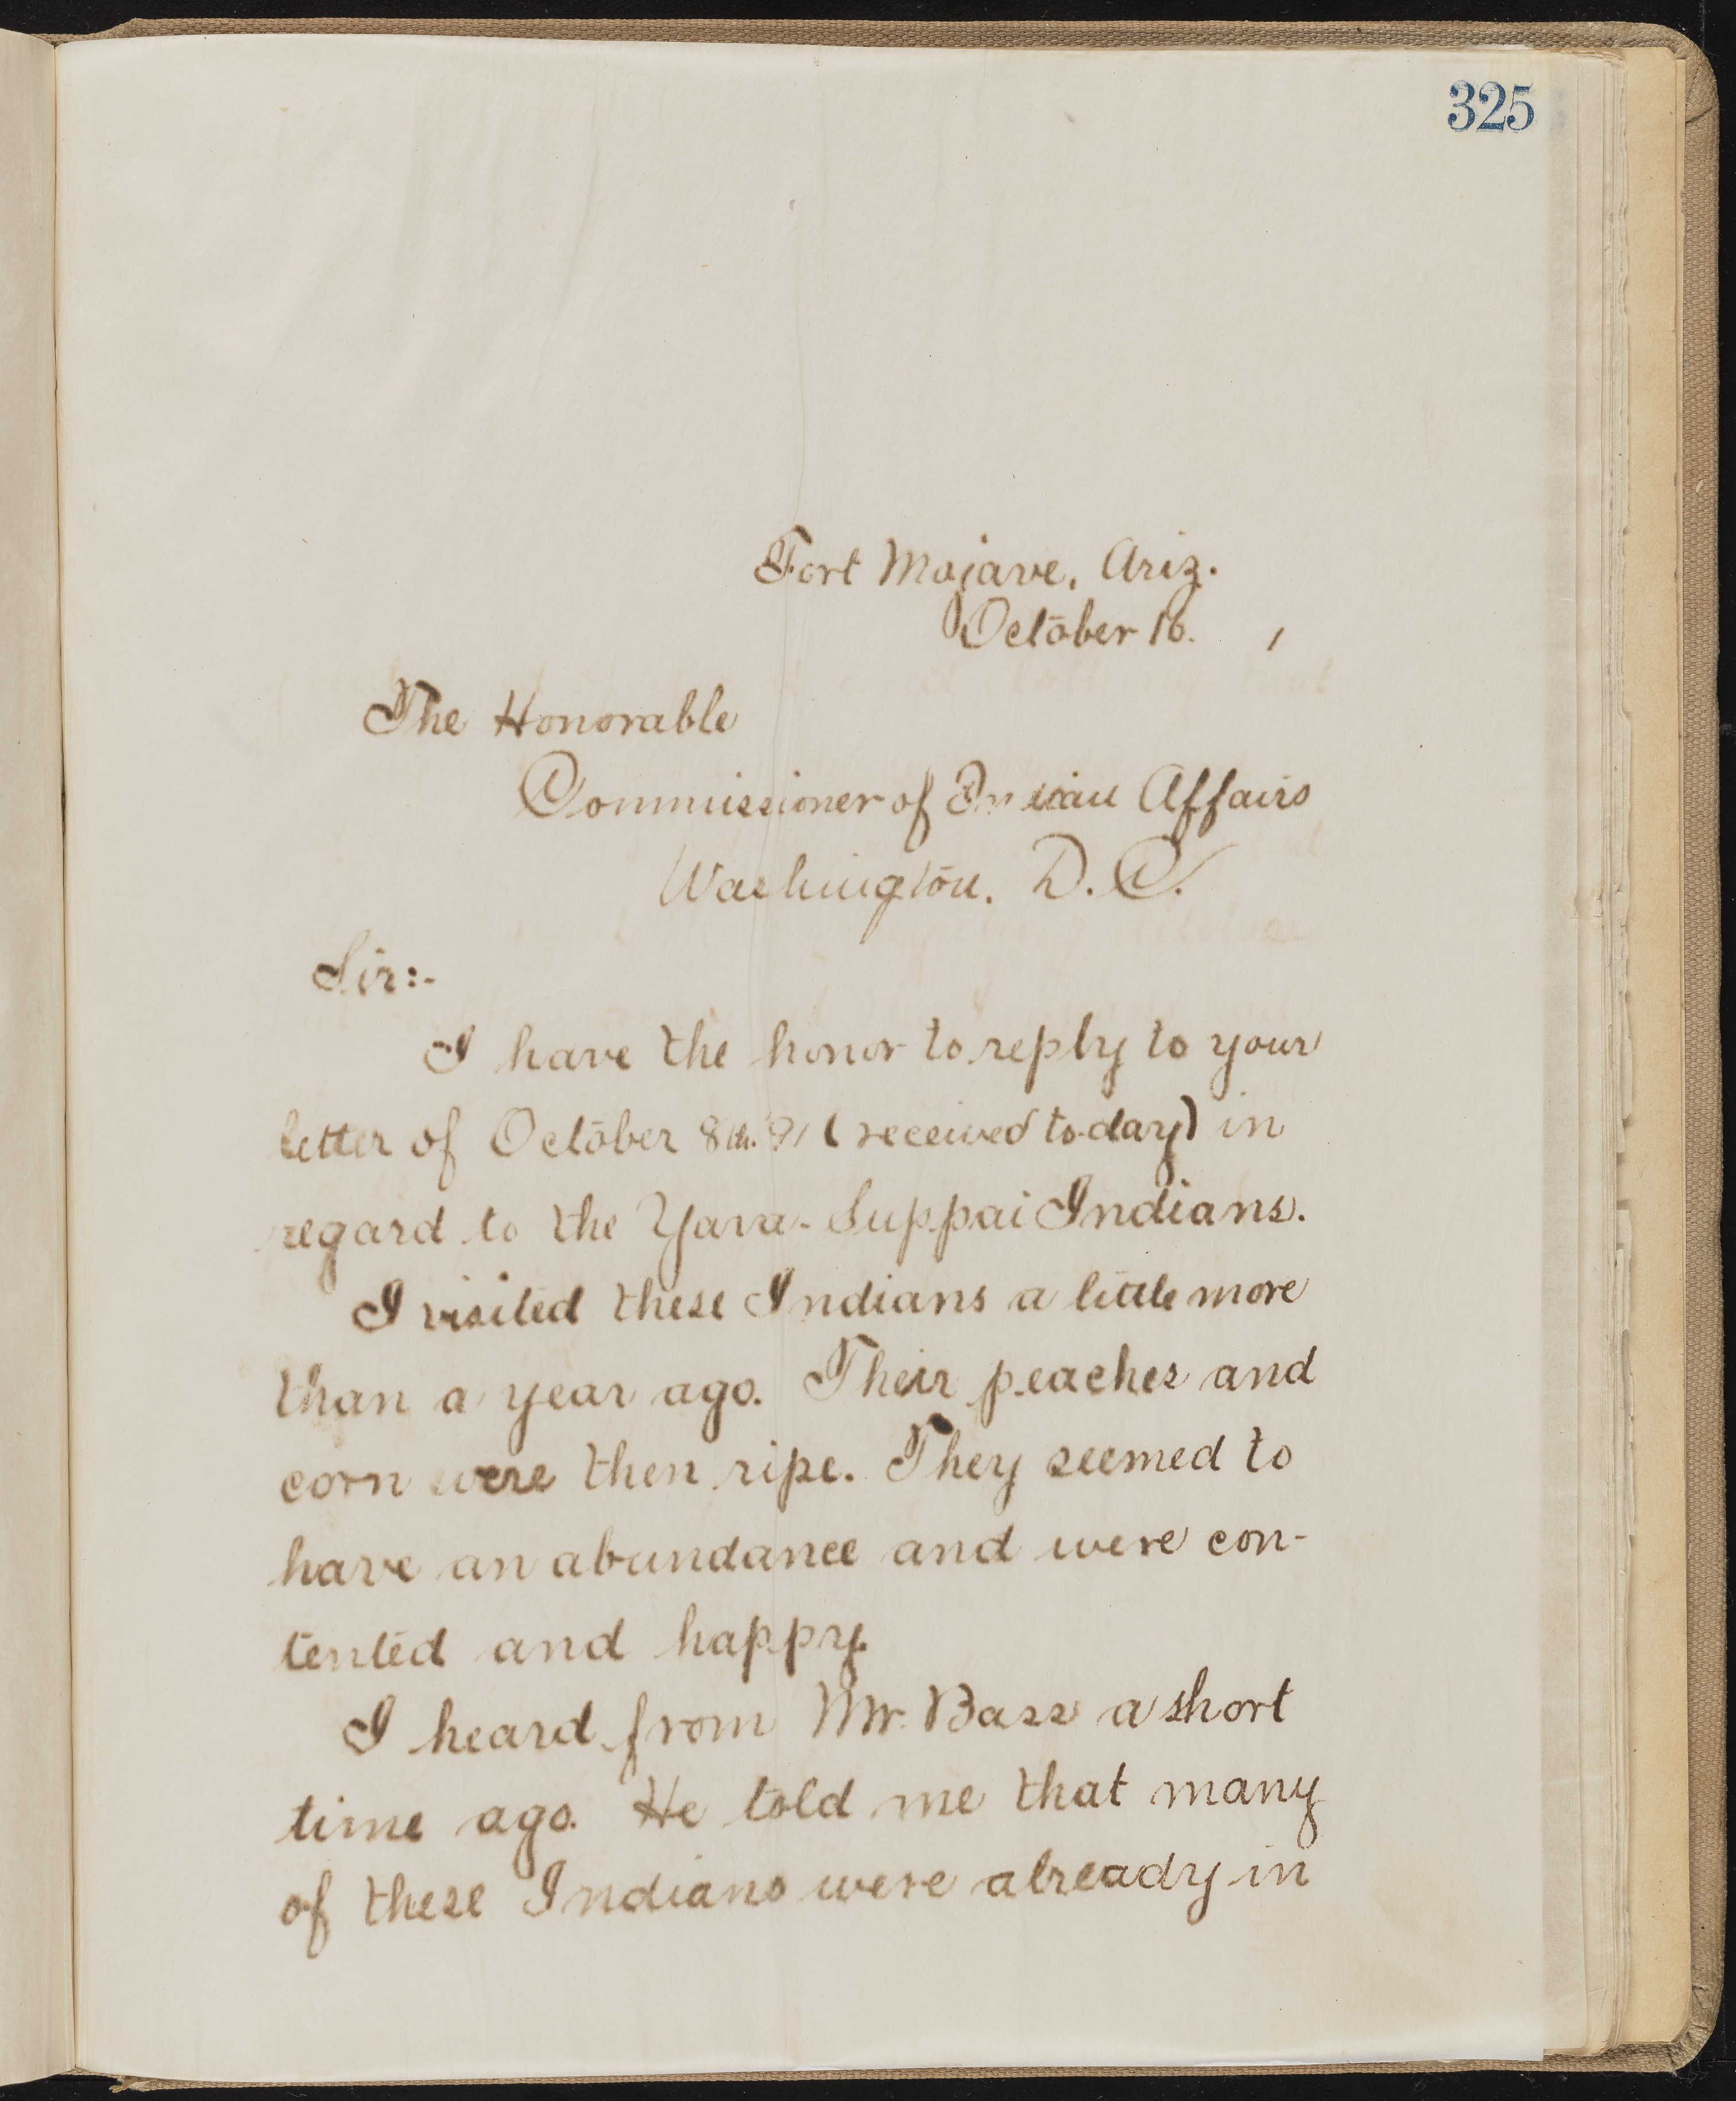 325
Fort Mojave, Ariz.
October 16. , 
The Honorable
Commissioner of Indian Affairs
Washington. D. C.
Sir:-
I have the honor to reply to your
letter of October 8th. 91 (received to-day) in
regard to the Yava-Suppai Indians.
I visited these Indians a little more
than a year ago. Their peaches and
corn were then ripe. They seemed to
have an abundance and were con-
tented and happy.
I heard from Mr. Bass a short
time ago. He told me that many
of these Indians were already in